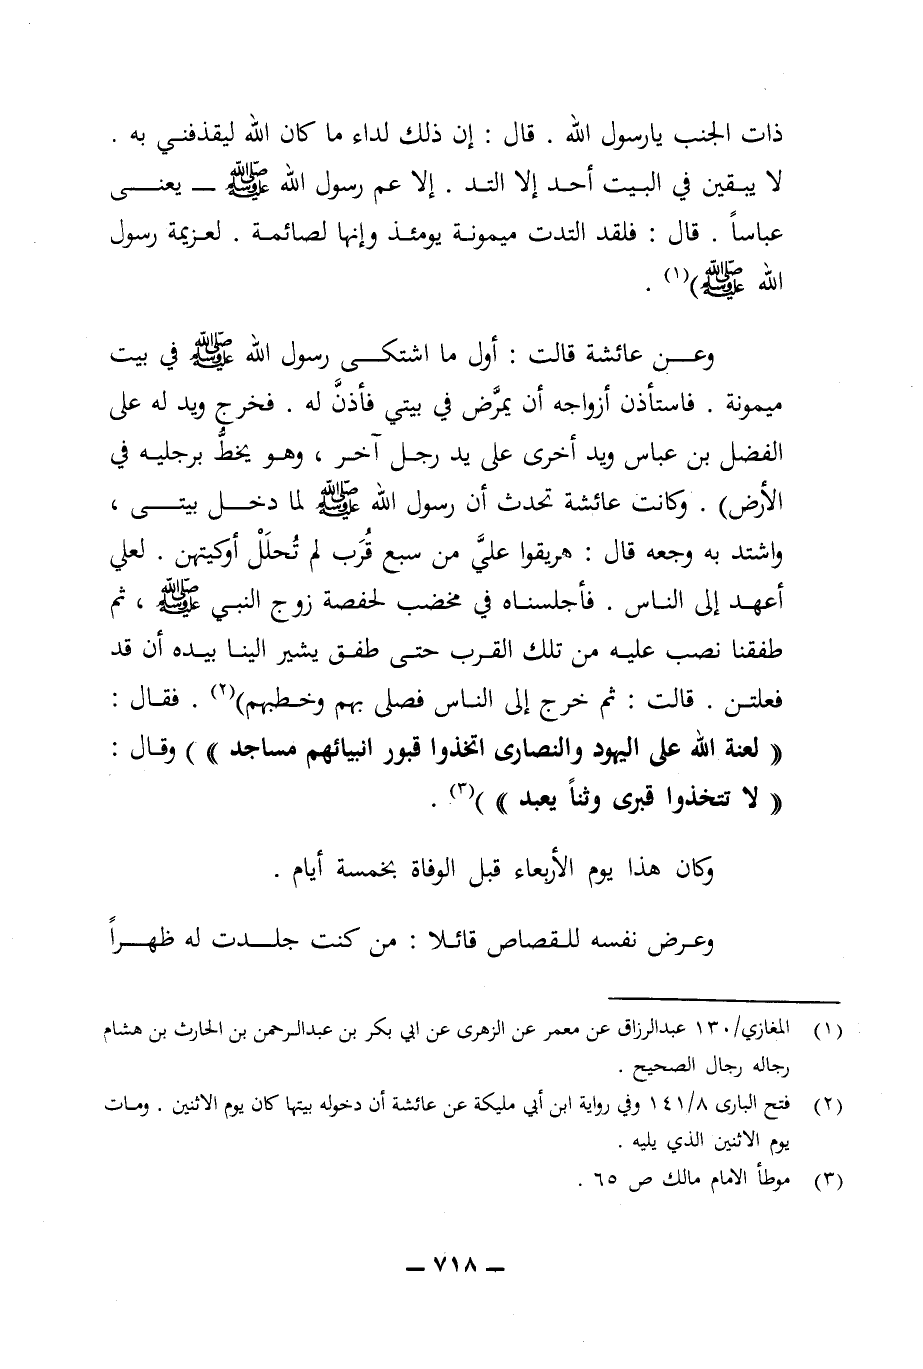 ذات الجنب يارسول الله . قال : إن ذلك لداء ما كان الله ليقذفني به .
لا يبقين في البيت أحد إلا التد . إلا عم رسول الله ﷺ ــ يعنى
عباساً . قال : فلقد التدت ميمونة يومئذ وإنها لصائمة . لعزيمة رسول
الله ﷺ)(١) .
وعن عائشة قالت : أول ما اشتكى رسول الله ﷺ في بيت
ميمونة . فاستأذن أزواجه أن يمرَّض في بيتي فأذنَّ له . فخرج ويد له على
الفضل بن عباس ويد أخرى على يد رجل آخر ، وهو يخطُّ برجليه في
الأرض) . وكانت عائشة تحدث أن رسول الله ﷺ لما دخل بيتى ،
واشتد به وجعه قال : هريقوا عليَّ من سبع قُرَب لم تُحلَلْ أوكيتهن . لعلي
أعهد إلى الناس . فأجلسناه في مخضب لحفصة زوج النبي ﷺ ، ثم
طفقنا نصب عليه من تلك القرب حتى طفق يشير الينا بيده أن قد
فعلتن . قالت : ثم خرج إلى الناس فصلى بهم وخطبهم)(٢) . فقال :
« لعنة الله على اليهود والنصارى اتخذوا قبور انبيائهم مساجد » ) وقال :
« لا تتخذوا قبرى وثناً يعبد » )(٣) .
وكان هذا يوم الأربعاء قبل الوفاة بخمسة أيام .
وعرض نفسه للقصاص قائلا : من كنت جلدت له ظهراً
(١) المغازي/١٣٠ عبدالرزاق عن معمر عن الزهرى عن ابي بكر بن عبدالرحمن بن الحارث بن هشام
رجاله رجال الصحيح .
(٢) فتح البارى ١٤١/٨ وفي رواية ابن أبي مليكة عن عائشة أن دخوله بيتها كان يوم الاثنين . ومات
يوم الاثنين الذي يليه .
(٣) موطأ الامام مالك ص ٦٥ .
ــ ٧١٨ ــ